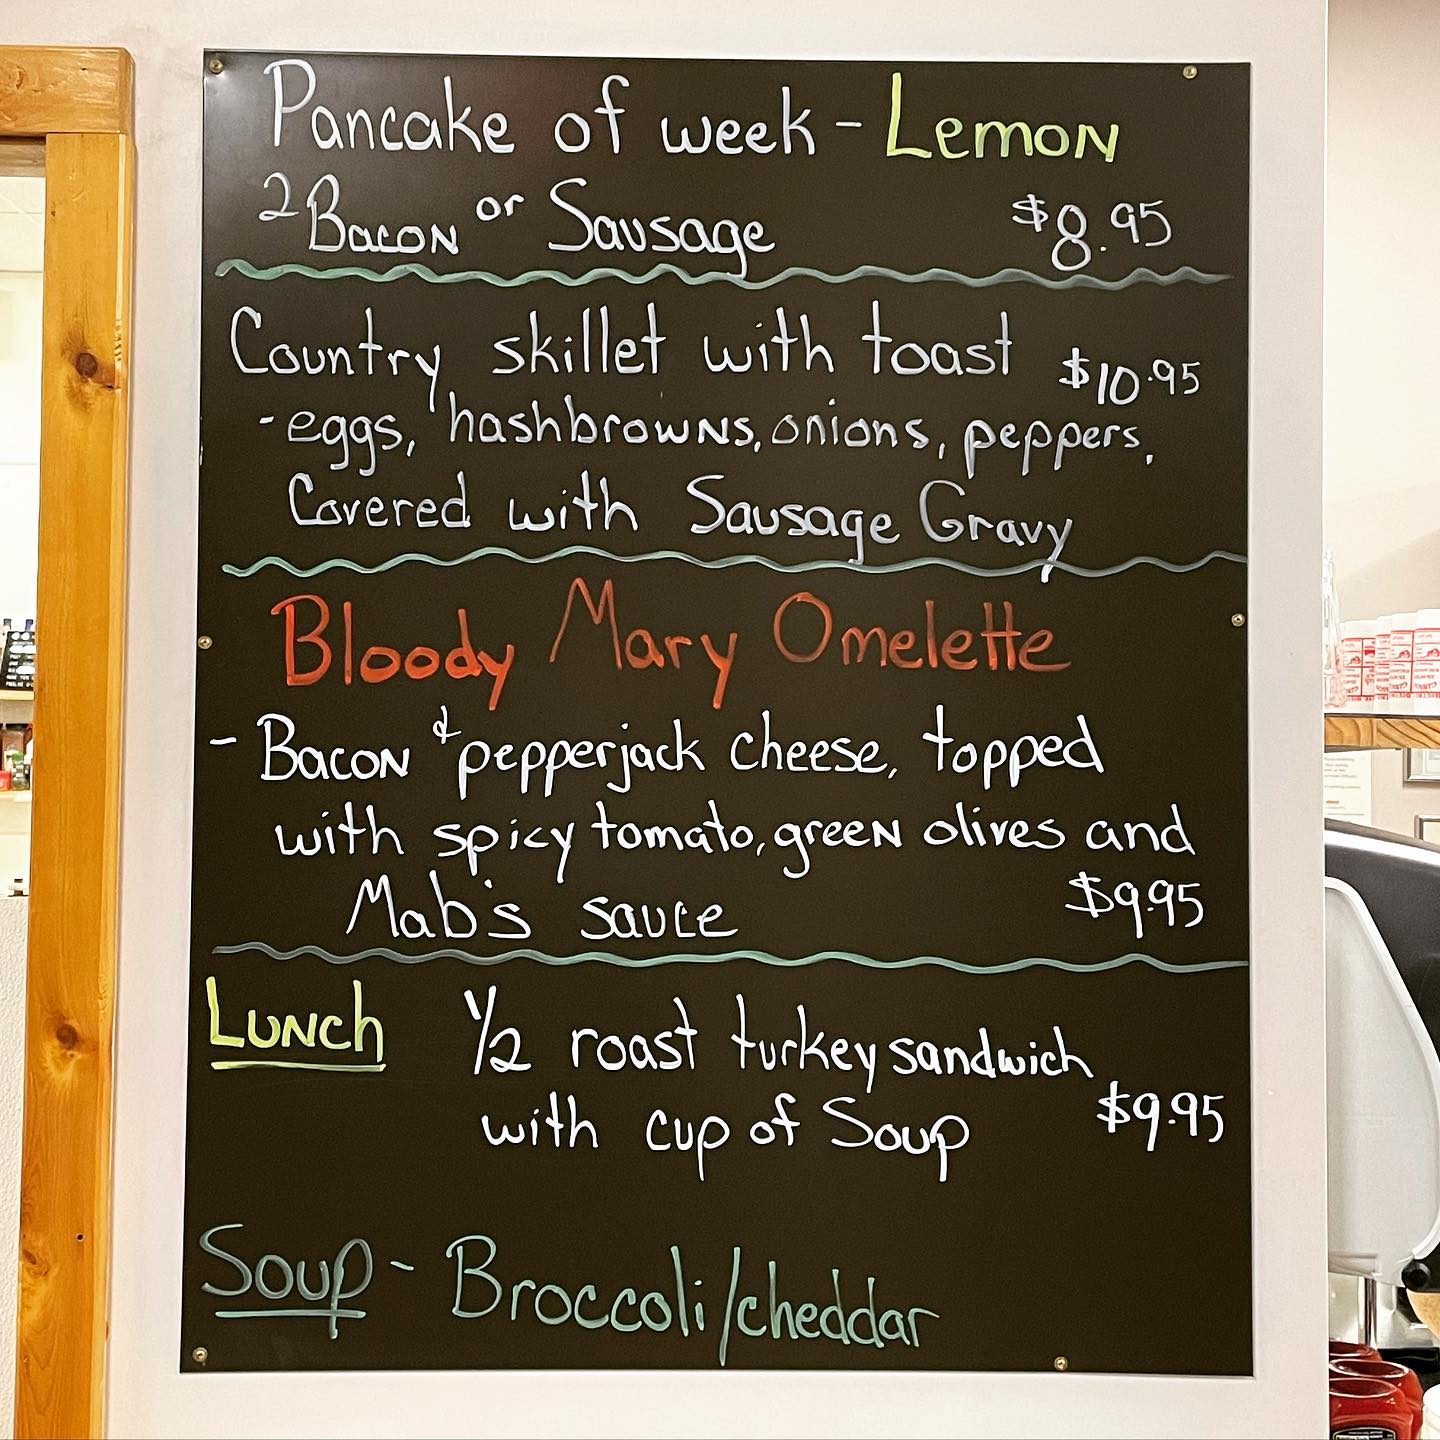 Pancake of week - Lemon
2 Bacon or Sausage $8.95
Country skillet with toast $10.95
- eggs, hashbrowns, onions, peppers,
Covered with Sausage Gravy
Bloody Mary Omelette
- Bacon & pepperjack cheese, topped
with spicy tomato, green olives and
Mab's sauce $9.95
Lunch 1/2 roast turkey sandwich
with cup of Soup $9.95
Soup - Broccoli/cheddar